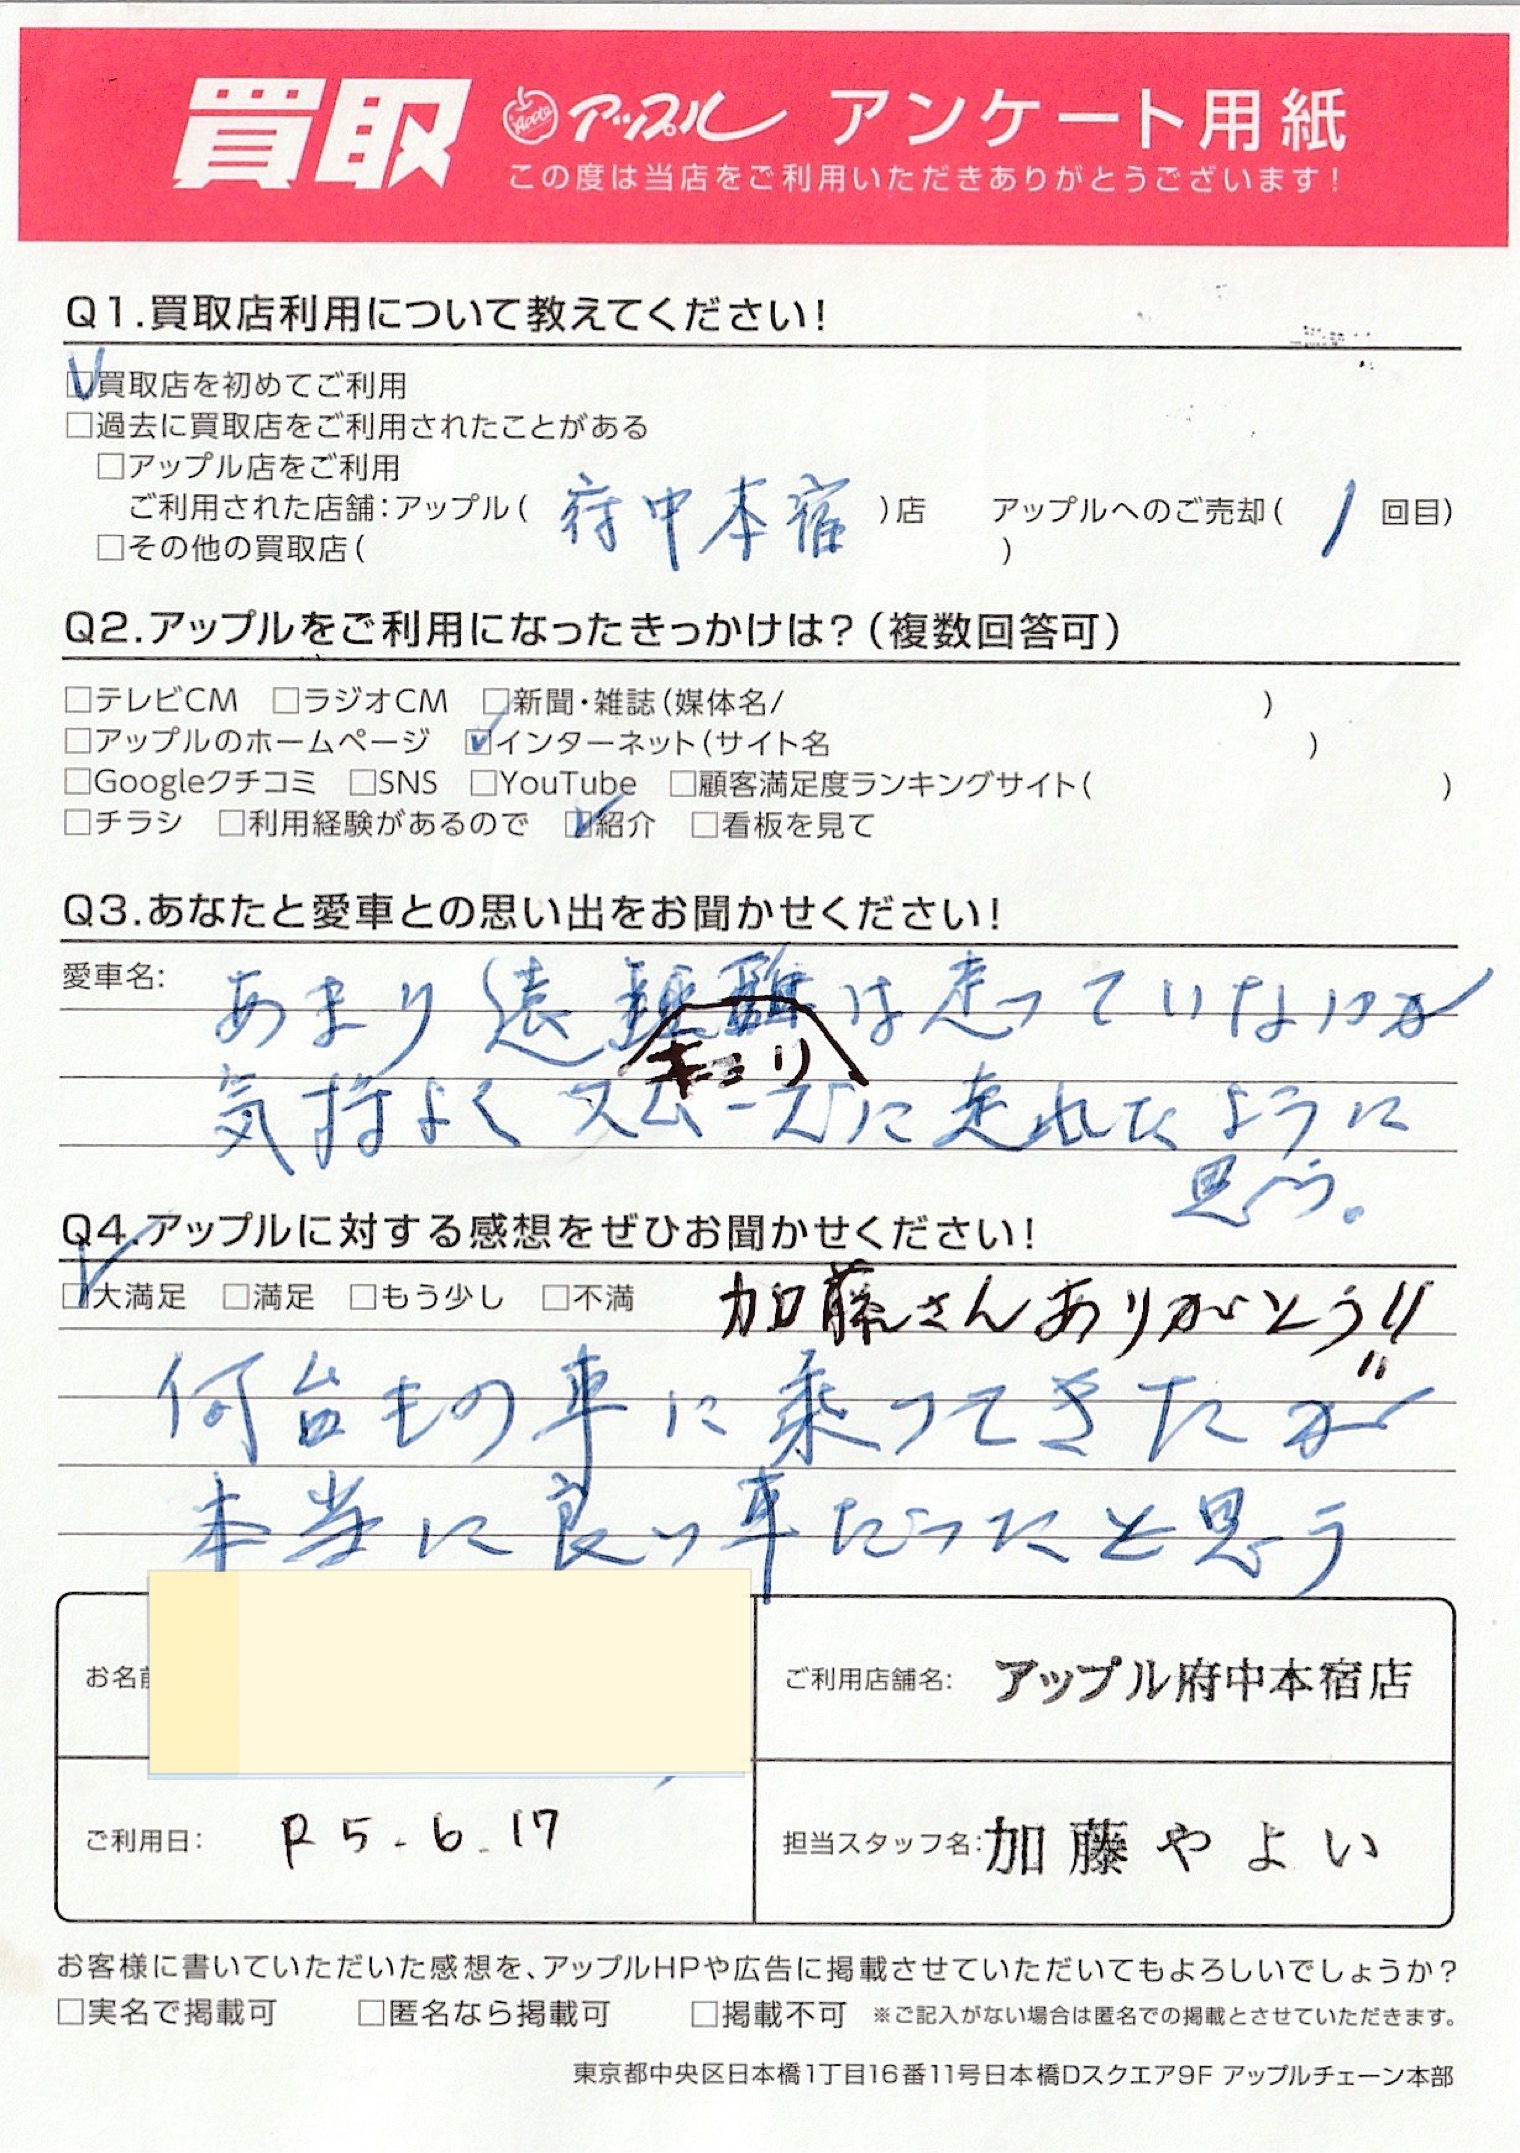 買取 Apple アップル アンケート用紙
この度は当店をご利用いただきありがとうございます!
Q1.買取店利用について教えてください!
☑買取店を初めてご利用
□過去に買取店をご利用されたことがある
□アップル店をご利用
ご利用された店舗:アップル( 府中本宿 )店 アップルへのご売却( 1 回目)
□その他の買取店( )
Q2.アップルをご利用になったきっかけは?(複数回答可)
□テレビCM □ラジオCM □新聞・雑誌(媒体名/ )
□アップルのホームページ ☑インターネット(サイト名 )
□Googleクチコミ □SNS □YouTube □顧客満足度ランキングサイト( )
□チラシ □利用経験があるので ☑紹介 □看板を見て
Q3.あなたと愛車との思い出をお聞かせください!
愛車名: あまり遠距離は走っていないが
キョリ
気持よくスムーズに走れたように
思う。
Q4.アップルに対する感想をぜひお聞かせください!
☑大満足 □満足 □もう少し □不満 加藤さんありがとう!!
何台もの車に乗ってきたが
本当に良い車だったと思う
お名前
ご利用店舗名: アップル府中本宿店
ご利用日: R5.6.17
担当スタッフ名: 加藤やよい
お客様に書いていただいた感想を、アップルHPや広告に掲載させていただいてもよろしいでしょうか?
□実名で掲載可 □匿名なら掲載可 □掲載不可 ※ご記入がない場合は匿名での掲載とさせていただきます。
東京都中央区日本橋1丁目16番11号日本橋Dスクエア9F アップルチェーン本部